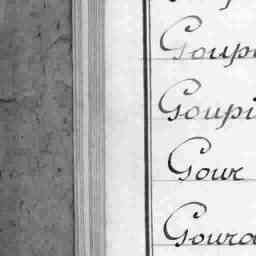 Goupi
Goupi
Gour
Goura